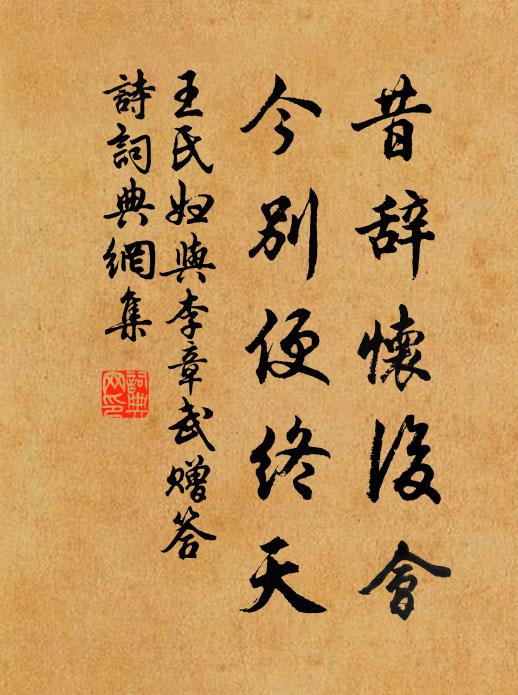 昔辞懷後會
今別便終天
王氏妇與李章武贈答
詩詞典網集
詞典网印